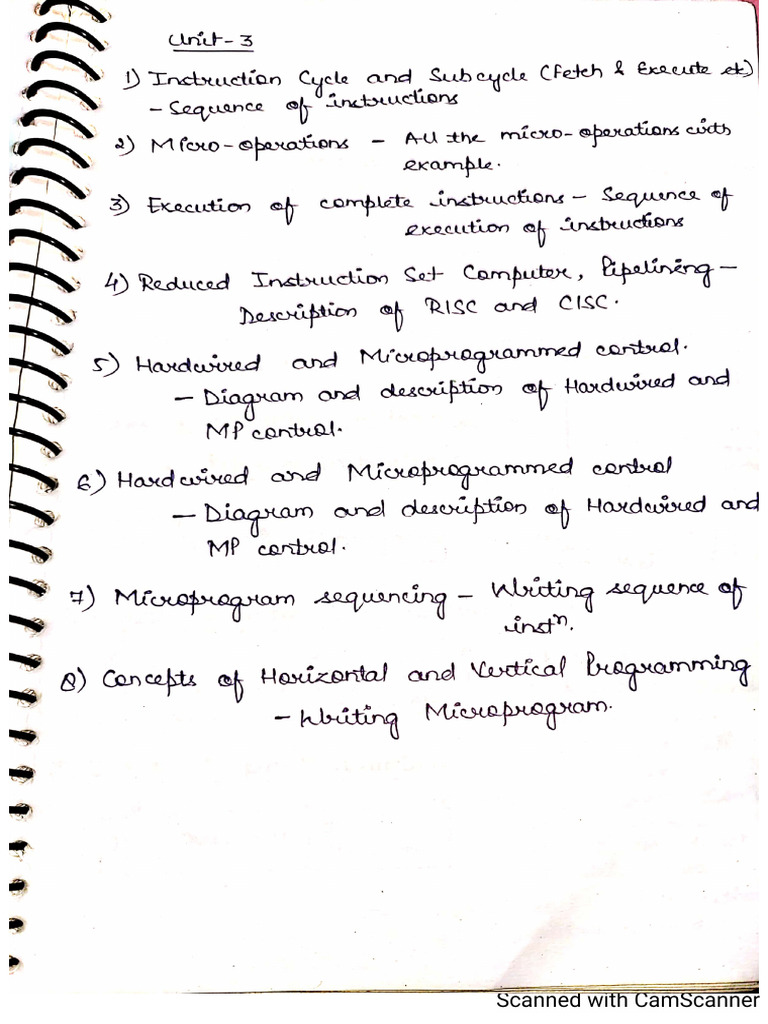 Unit-3
1) Instruction Cycle and Subcycle (Fetch & Execute etc)
- Sequence of instructions
2) Micro-operations - All the micro-operations with
example.
3) Execution of complete instructions - Sequence of
execution of instructions
4) Reduced Instruction Set Computer, Pipelining -
Description of RISC and CISC.
5) Hardwired and Microprogrammed control.
- Diagram and description of Hardwired and
MP control.
6) Hardwired and Microprogrammed control
- Diagram and description of Hardwired and
MP control.
7) Microprogram sequencing - Writing sequence of
instⁿ.
8) Concepts of Horizontal and Vertical Programming
- Writing Microprogram.
Scanned with CamScanner